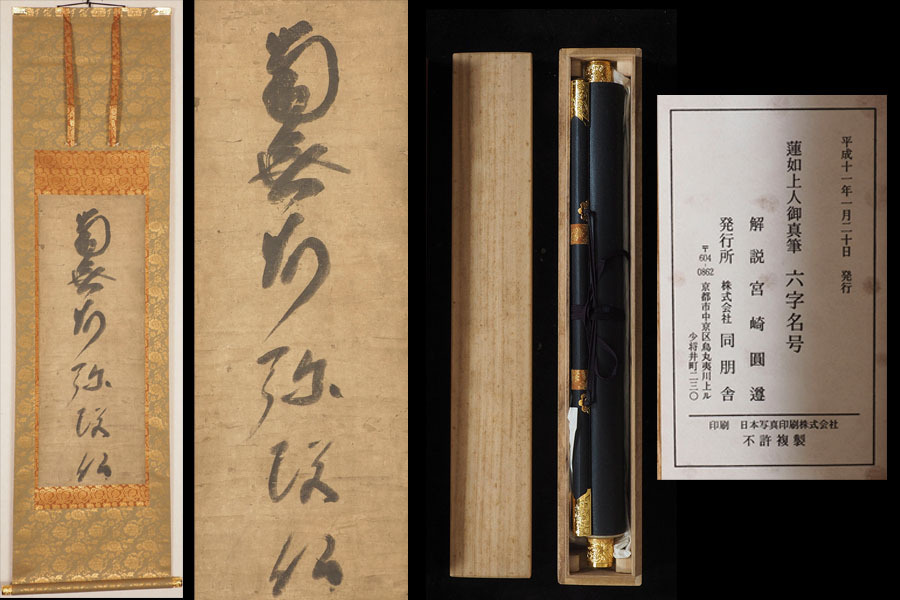 南無阿弥陀仏
南無阿弥陀仏
平成十一年一月二十日 発行
蓮如上人御真筆 六字名号
解説 宮崎圓遵
発行所 株式会社 同朋舎
〒604-0862 京都市中京区烏丸夷川上ル
少将井町二三〇
印刷 日本写真印刷株式会社
不許複製